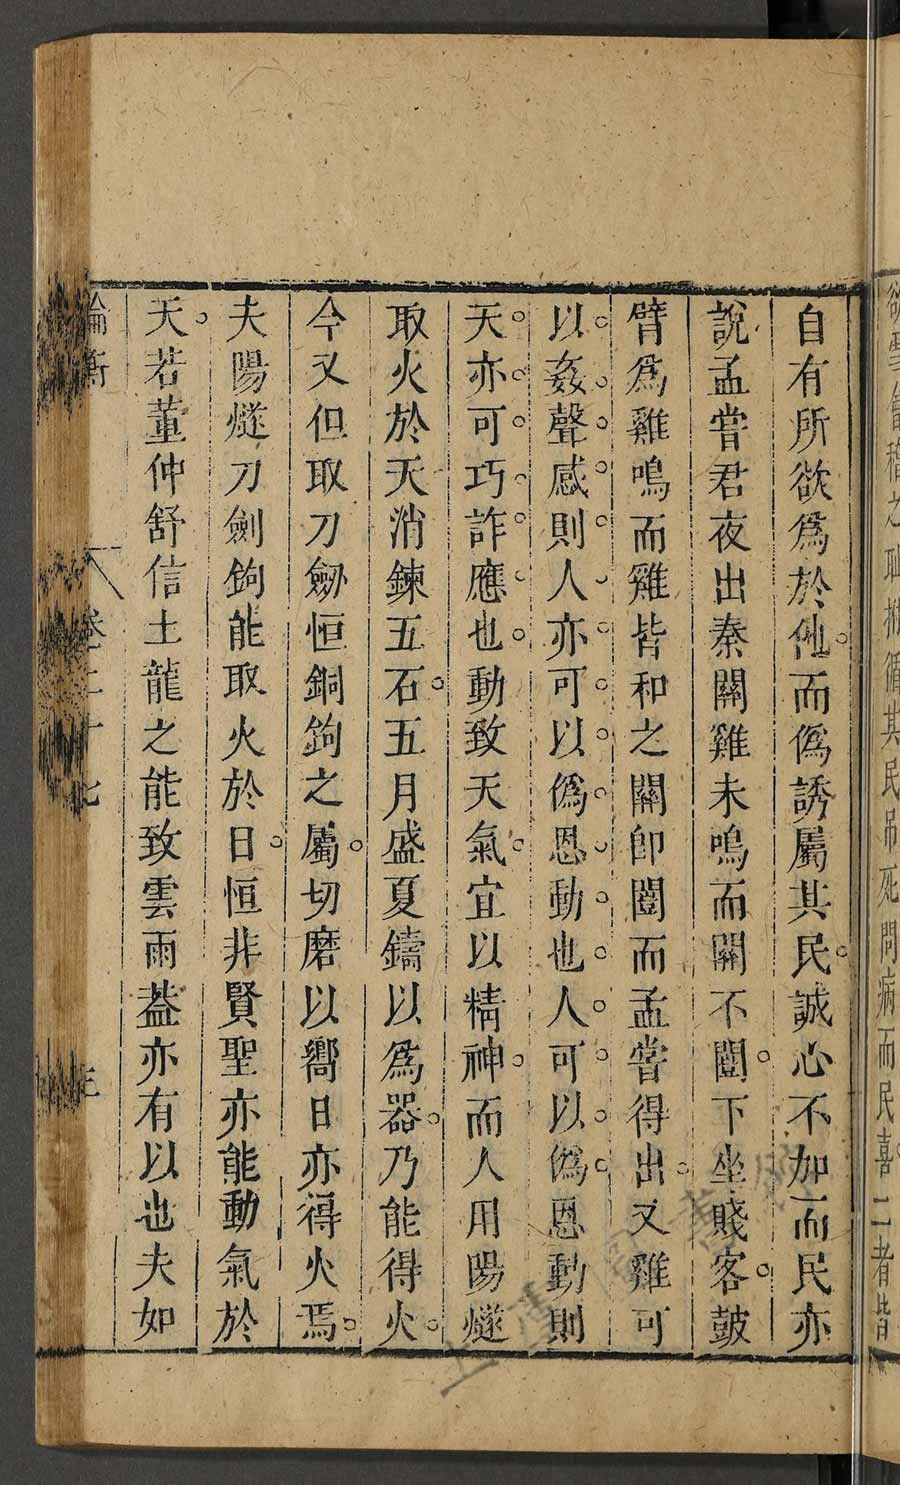 自有所欲為於他。而偽誘屬其民。誠心不加而民亦
說孟嘗君夜出秦關雞未鳴而關不闓。下坐賤客。鼓
臂為雞鳴而雞皆和之關即闓而孟嘗得出。又雞可
以姦聲感則人亦可以偽恩動也。人可以偽恩動則
天亦可巧詐應也。動致天氣。宜以精神。而人用陽燧
取火於天消鍊五石。五月盛夏鑄以為器。乃能得火。
今又但取刀劒恒銅鉤之屬。切磨以嚮日亦得火焉。
夫陽燧刀劍鉤能取火於日。恒非賢聖亦能動氣於
天。若董仲舒信土龍之能致雲雨葢亦有以也夫如
論衡
卷二十七